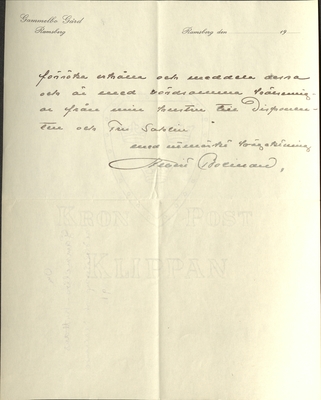 Gammelbo Gård
Ramsberg
Ramsberg den 19
försöka utröna och meddela dessa
och är med vördsamma hälsning-
ar från min hustru till Disponen-
ten och Fru Sahlin
med utmärkt högaktning
KRON POST
KLIPPAN